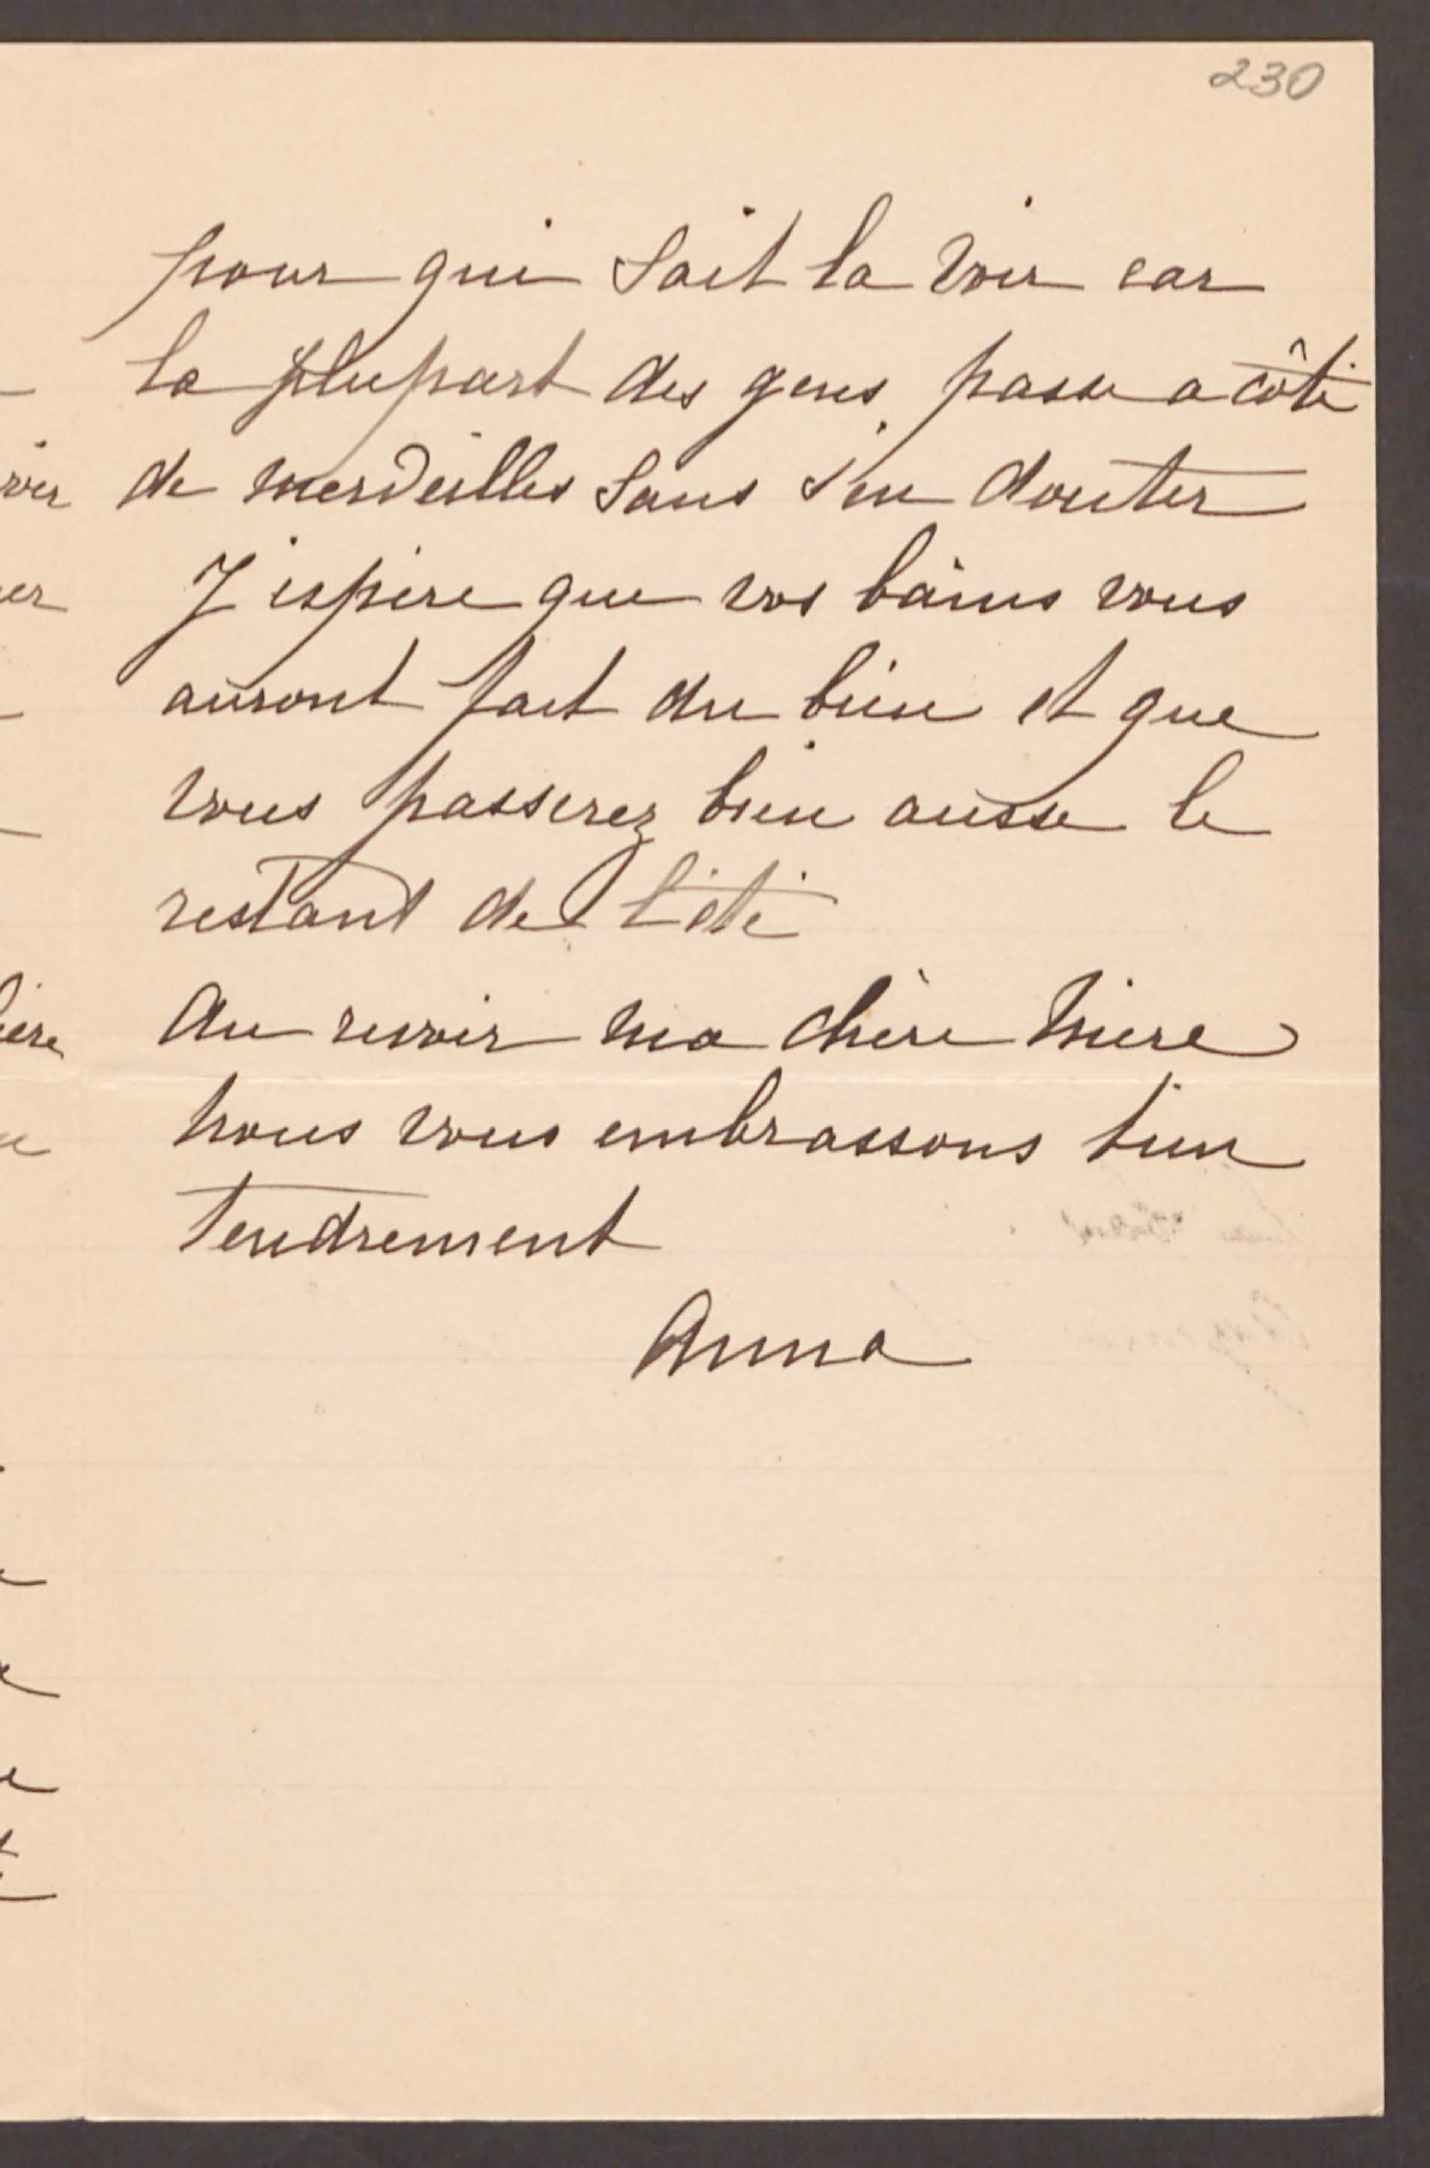 230
pour qui sait la voir car
la plupart des gens passe a côté
de merveilles sans s'en douter
J'espère que vos bains vous
auront fait du bien et que
vous passerez bien aussi le
restant de l'été
Au revoir ma chère Mère
nous vous embrassons bien
Tendrement
Anna